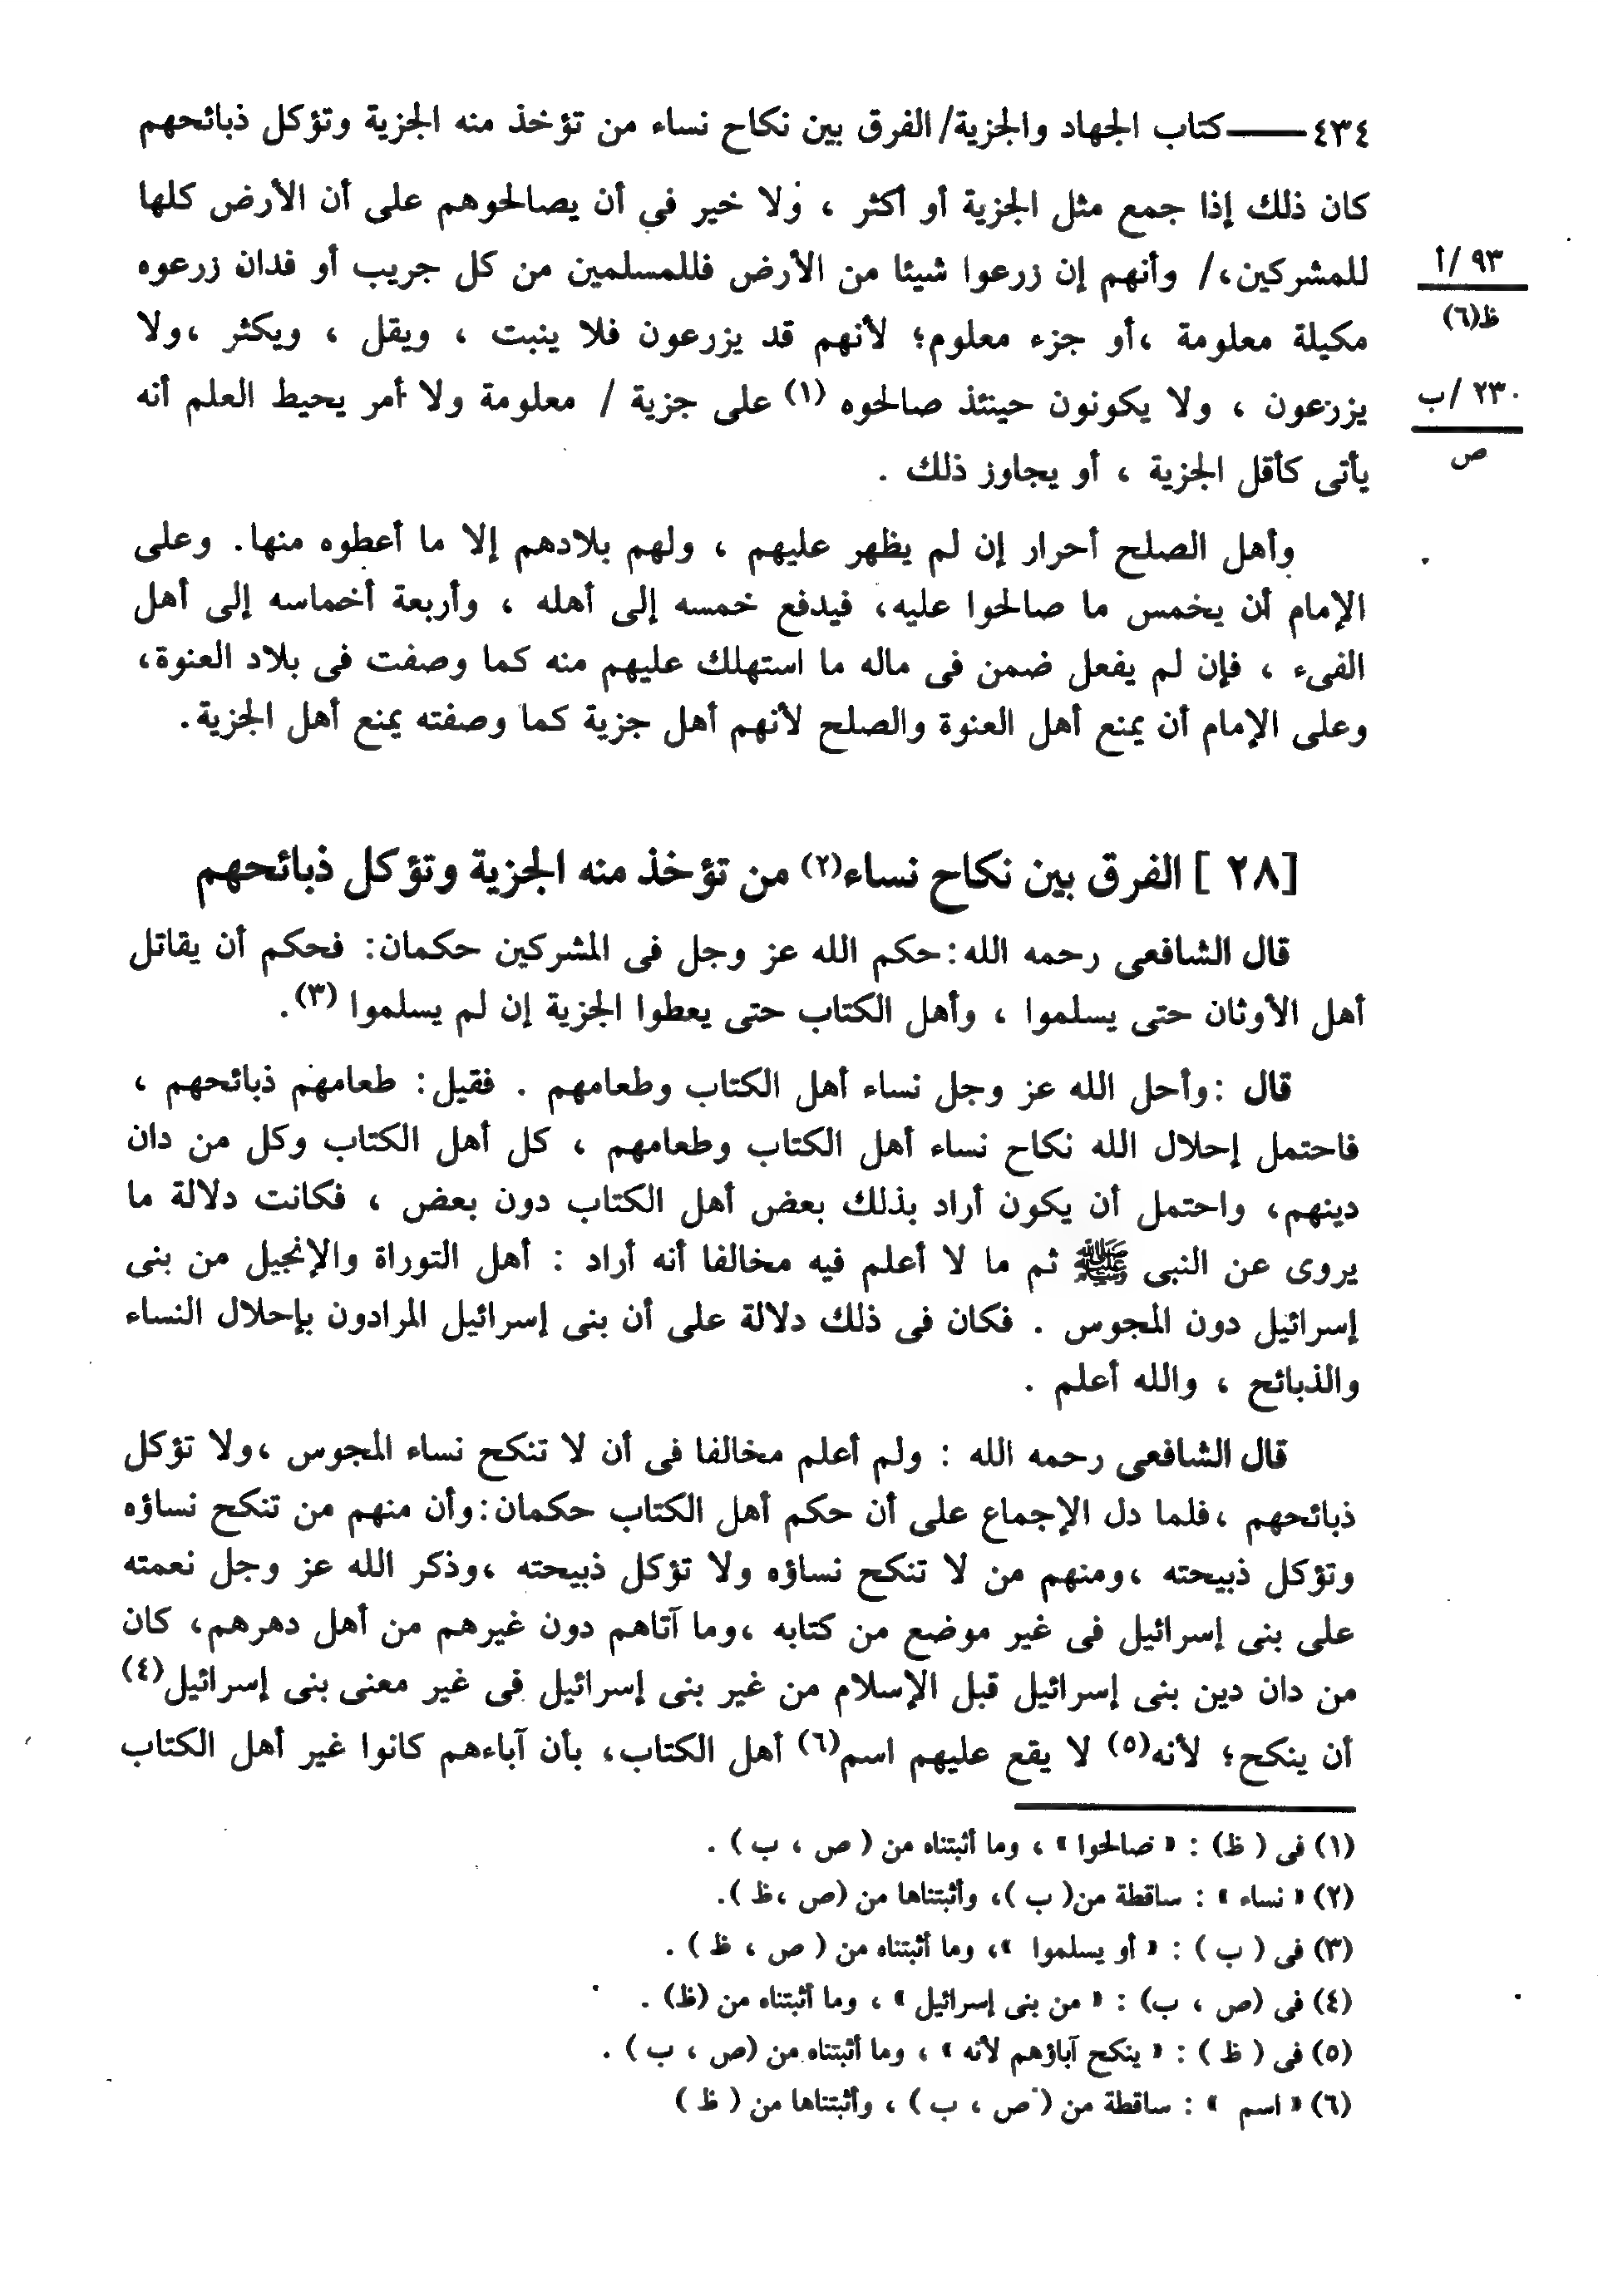 ٤٣٤ ــــــ كتاب الجهاد والجزية/ الفرق بين نكاح نساء من تؤخذ منه الجزية وتؤكل ذبائحهم
كان ذلك إذا جمع مثل الجزية أو أكثر ، ولا خير فى أن يصالحوهم على أن الأرض كلها
للمشركين،/ وأنهم إن زرعوا شيئا من الأرض فللمسلمين من كل جريب أو فدان زرعوه
٩٣ /أ
ظ(٦)
مكيلة معلومة ،أو جزء معلوم؛ لأنهم قد يزرعون فلا ينبت ، ويقل ، ويكثر ،ولا
يزرعون ، ولا يكونون حينئذ صالحوه (١) على جزية / معلومة ولا أمر يحيط العلم أنه
٢٣٠ /ب
ص
يأتى كأقل الجزية ، أو يجاوز ذلك .
وأهل الصلح أحرار إن لم يظهر عليهم ، ولهم بلادهم إلا ما أعطوه منها. وعلى
الإمام أن يخمس ما صالحوا عليه، فيدفع خمسه إلى أهله ، وأربعة أخماسه إلى أهل
الفىء ، فإن لم يفعل ضمن فى ماله ما استهلك عليهم منه كما وصفت فى بلاد العنوة،
وعلى الإمام أن يمنع أهل العنوة والصلح لأنهم أهل جزية كما وصفته يمنع أهل الجزية.
[٢٨ ] الفرق بين نكاح نساء(٢) من تؤخذ منه الجزية وتؤكل ذبائحهم
قال الشافعى رحمه الله :حكم الله عز وجل فى المشركين حكمان: فحكم أن يقاتل
أهل الأوثان حتى يسلموا ، وأهل الكتاب حتى يعطوا الجزية إن لم يسلموا (٣).
قال :وأحل الله عز وجل نساء أهل الكتاب وطعامهم . فقيل: طعامهم ذبائحهم ،
فاحتمل إحلال الله نكاح نساء أهل الكتاب وطعامهم ، كل أهل الكتاب وكل من دان
دينهم، واحتمل أن يكون أراد بذلك بعض أهل الكتاب دون بعض ، فكانت دلالة ما
يروى عن النبى ﷺ ثم ما لا أعلم فيه مخالفا أنه أراد : أهل التوراة والإنجيل من بنى
إسرائيل دون المجوس . فكان فى ذلك دلالة على أن بنى إسرائيل المرادون بإحلال النساء
والذبائح ، والله أعلم .
قال الشافعى رحمه الله : ولم أعلم مخالفا فى أن لا تنكح نساء المجوس ،ولا تؤكل
ذبائحهم ،فلما دل الإجماع على أن حكم أهل الكتاب حكمان:وأن منهم من تنكح نساؤه
وتؤكل ذبيحته ،ومنهم من لا تنكح نساؤه ولا تؤكل ذبيحته ،وذكر الله عز وجل نعمته
على بنى إسرائيل فى غير موضع من كتابه ،وما آتاهم دون غيرهم من أهل دهرهم، كان
من دان دين بنى إسرائيل قبل الإسلام من غير بنى إسرائيل فى غير معنى بنى إسرائيل(٤)
أن ينكح؛ لأنه(٥) لا يقع عليهم اسم(٦) أهل الكتاب، بأن آباءهم كانوا غير أهل الكتاب
(١) فى ( ظ) : « صالحوا » ، وما أثبتناه من ( ص ، ب ) .
(٢) « نساء » : ساقطة من( ب )، وأثبتناها من (ص ،ظ ).
(٣) فى ( ب ) : « أو يسلموا »، وما أثبتناه من ( ص ، ظ ) .
(٤) فى (ص ، ب) : « من بنى إسرائيل » ، وما أثبتناه من (ظ) .
(٥) فى ( ظ ) : « ينكح آباؤهم لأنه » ، وما أثبتناه من (ص ، ب ) .
(٦) « اسم » : ساقطة من ( ص ، ب ) ، وأثبتناها من ( ظ )